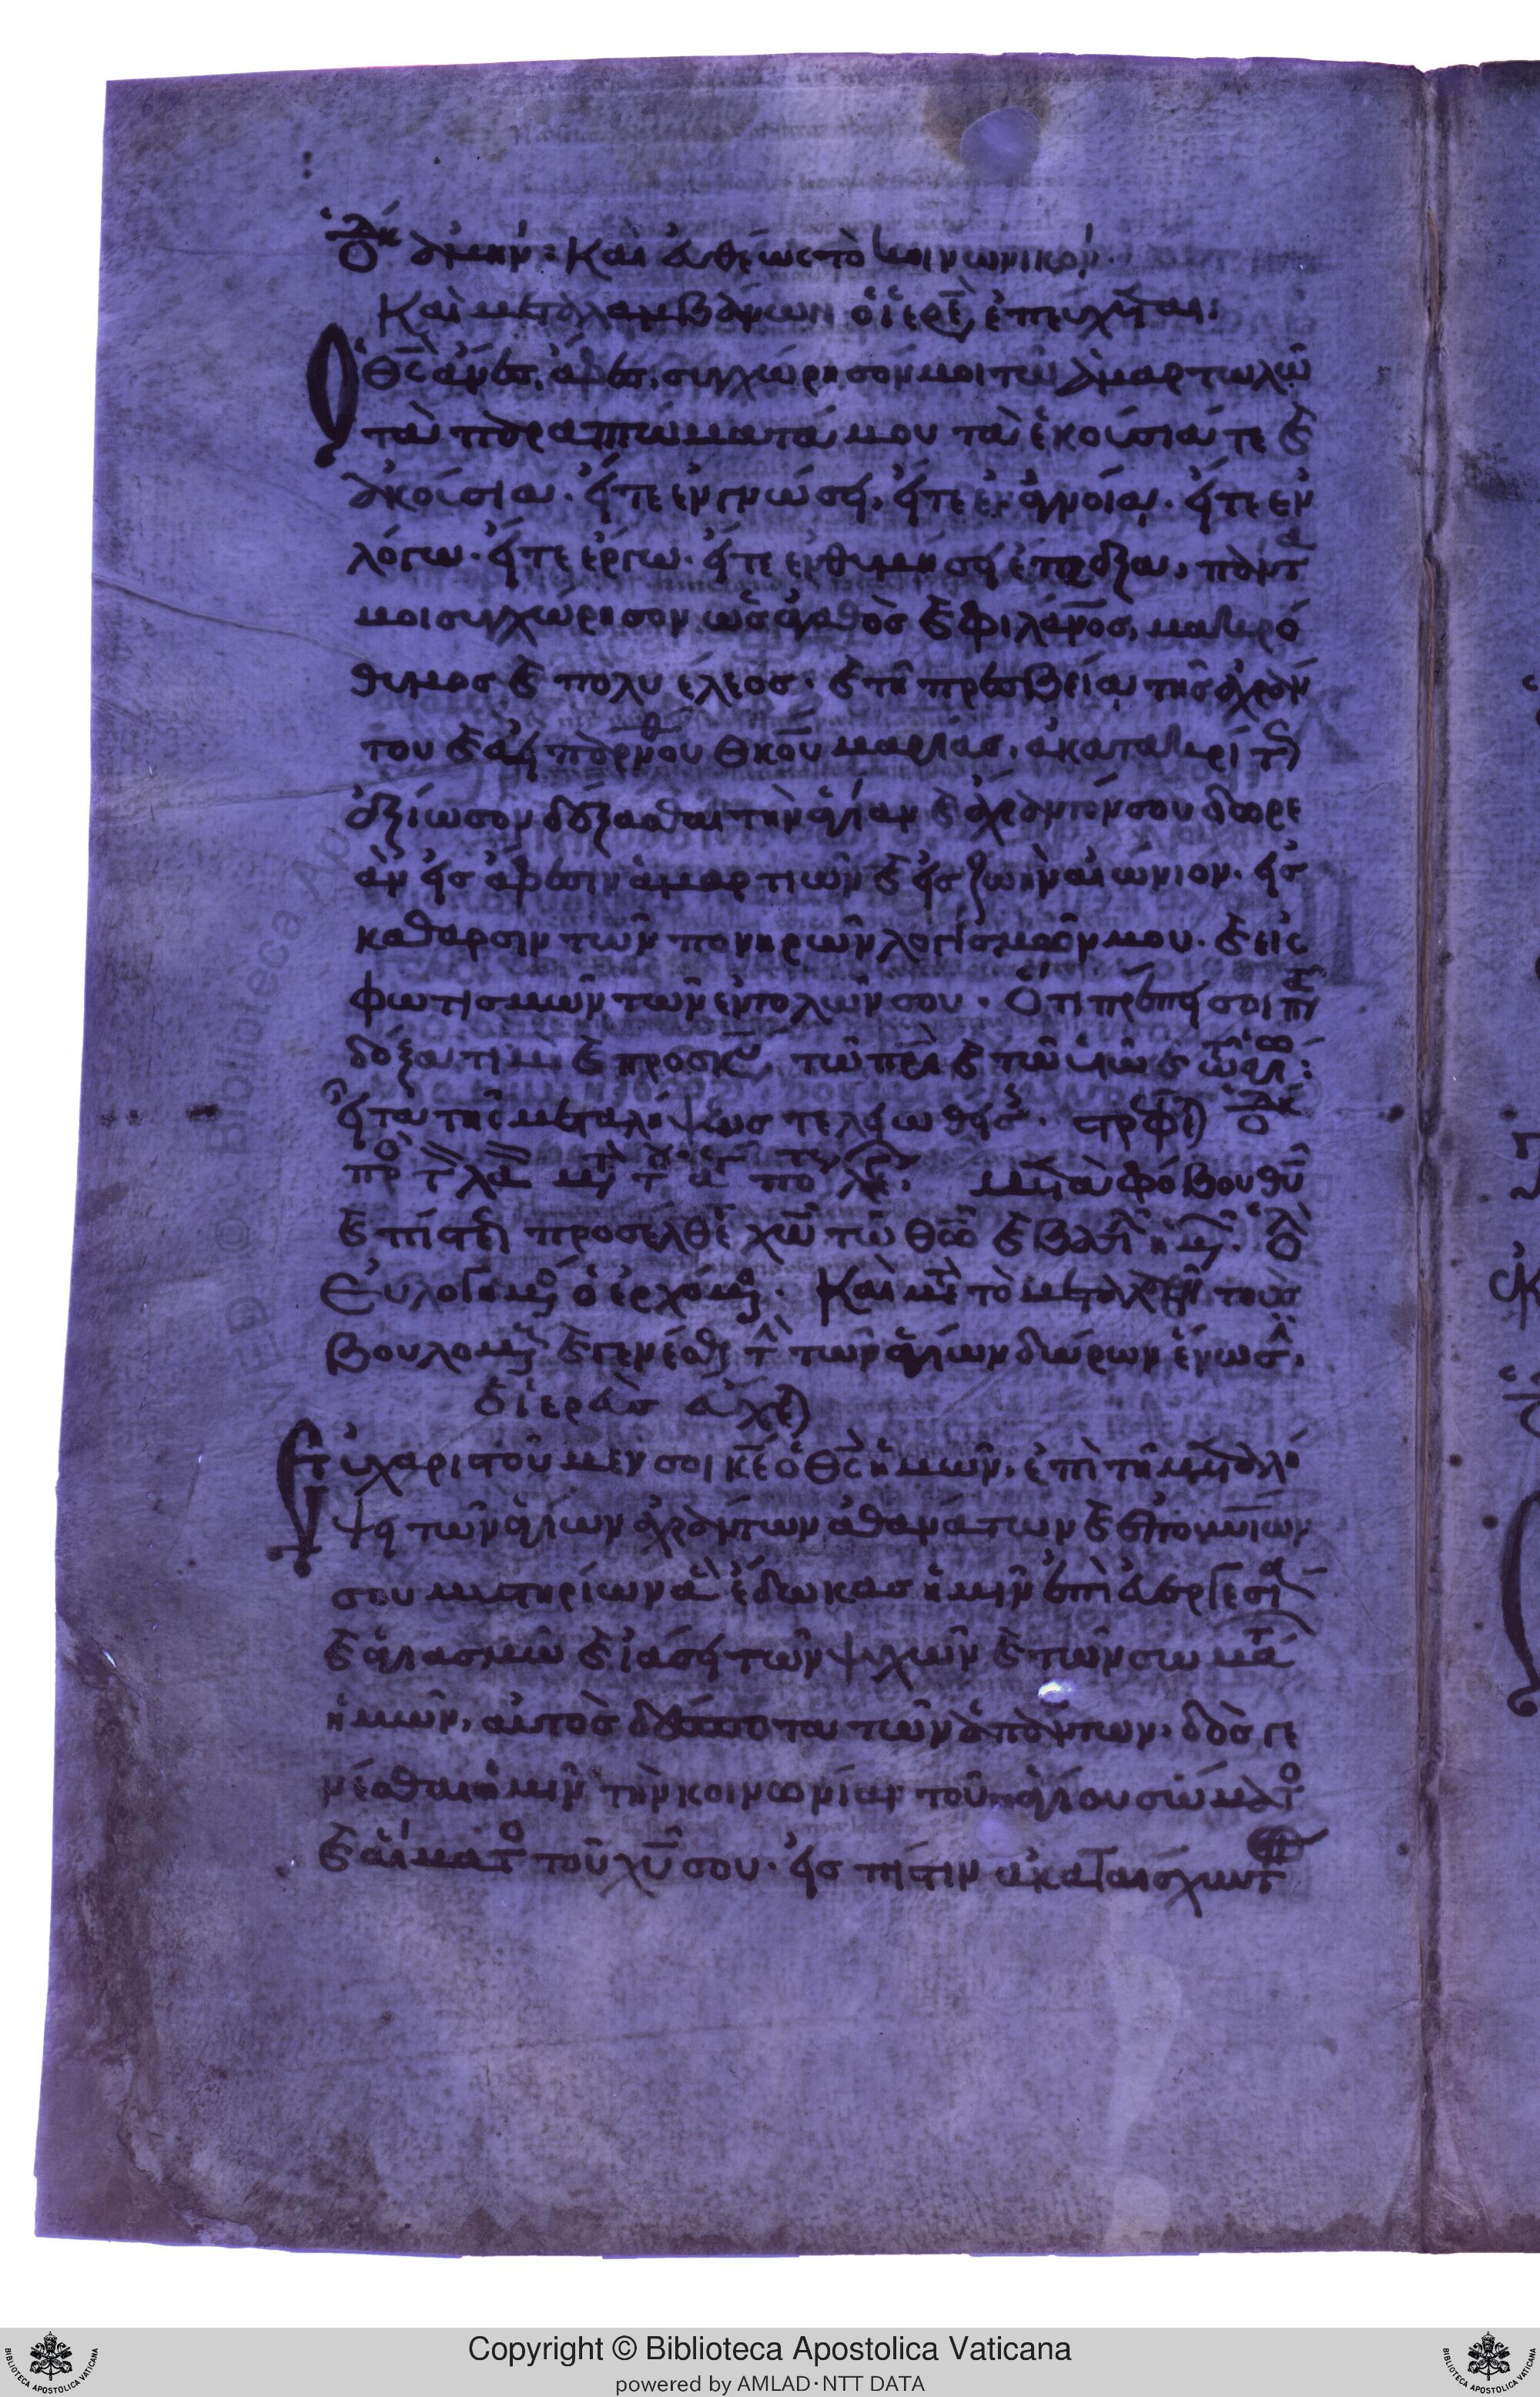 ὁ λα ἀμήν: Καὶ εὐθέως τὸ κοινωνικόν.
Καὶ μεταλαμβάνων ὁ ἱερε ἐπευχεται:
Ὁ Θς ἄνες, ἄφες, συγχώρησόν μοι τῶ ἁμαρτωλῶ
τὰ παραπτώματά μου τὰ ἑκούσιά τε καὶ
ἀκούσια. εἴτε ἐν γνώσει, εἴτε ἐν ἀγνοία. εἴτε ἐν
λόγω. εἴτε ἔργω. εἴτε ἐνθυμήσει ἔπραξα, πάντα
μοι συγχώρησον ὡς ἀγαθὸς καὶ φιλανος, μακρό
θυμος καὶ πολυέλεος. καὶ τῆ πρεσβεία τῆς ἀχράν
του καὶ ἀειπαρθνου Θκου μαρίας, ἀκατακρίτ
ἀξίωσον δέξασθαι τὴν ἁγίαν καὶ ἄχραντόν σου δωρε
ὰν εἰς ἄφεσιν ἁμαρτιῶν καὶ εἰς ζωὴν αἰώνιον. εἰς
κάθαρσιν τῶν πονηρῶν λογισμῶν μου. καὶ εἰς
φωτισμὼν τῶν ἐντολῶν σου. Ὅτι πρέπει σοι π
δόξα τιμὴ καὶ προσκ, τῶ πρὶ καὶ τῶ υἱῶ καὶ τῶ ἁγι:
εἶτα τῆς μεταλήψεως τελειωθεισ.
μετὰ φόβου θυ
καὶ πίστε προσέλθε χω τῶ θῶ καὶ βασιλ ἡμ. ὁ λα
Εὐλογημ ὁ ἐρχόμ. Καὶ μετ τὸ μεταλαβεῖν τοὺς
βουλομ καὶ γενέσθ τ τῶν ἁγίων δώρων ἕνωσ.
ὁ ἱερεὺς εὐχε
Εὐχαριστοῦμέν σοι κε ὁ Θς ἡμῶν, ἐπὶ τῆ μεταλή
ψει τῶν ἁγίων ἀχράντων ἀθανάτων καὶ ἐπουνίων
σου μυστηρίων ἃ ἔδωκας ἡμῖν ἐπὶ εὐεργεσία
καὶ ἁγιασμῶ καὶ ἰάσει τῶν ψυχῶν καὶ τῶν σωμάτ
ἡμῶν, αὐτὸς δέσποτα τῶν ἁπάντων, δὸς γε
νέσθαι ἡμῖν τὴν κοινωνίαν τοῦ ἁγίου σώματο
καὶ αἵματο τοῦ χυ σου. εἰς πίστιν ἀκαταίσχυντ
Copyright © Biblioteca Apostolica Vaticana
powered by AMLAD·NTT DATA